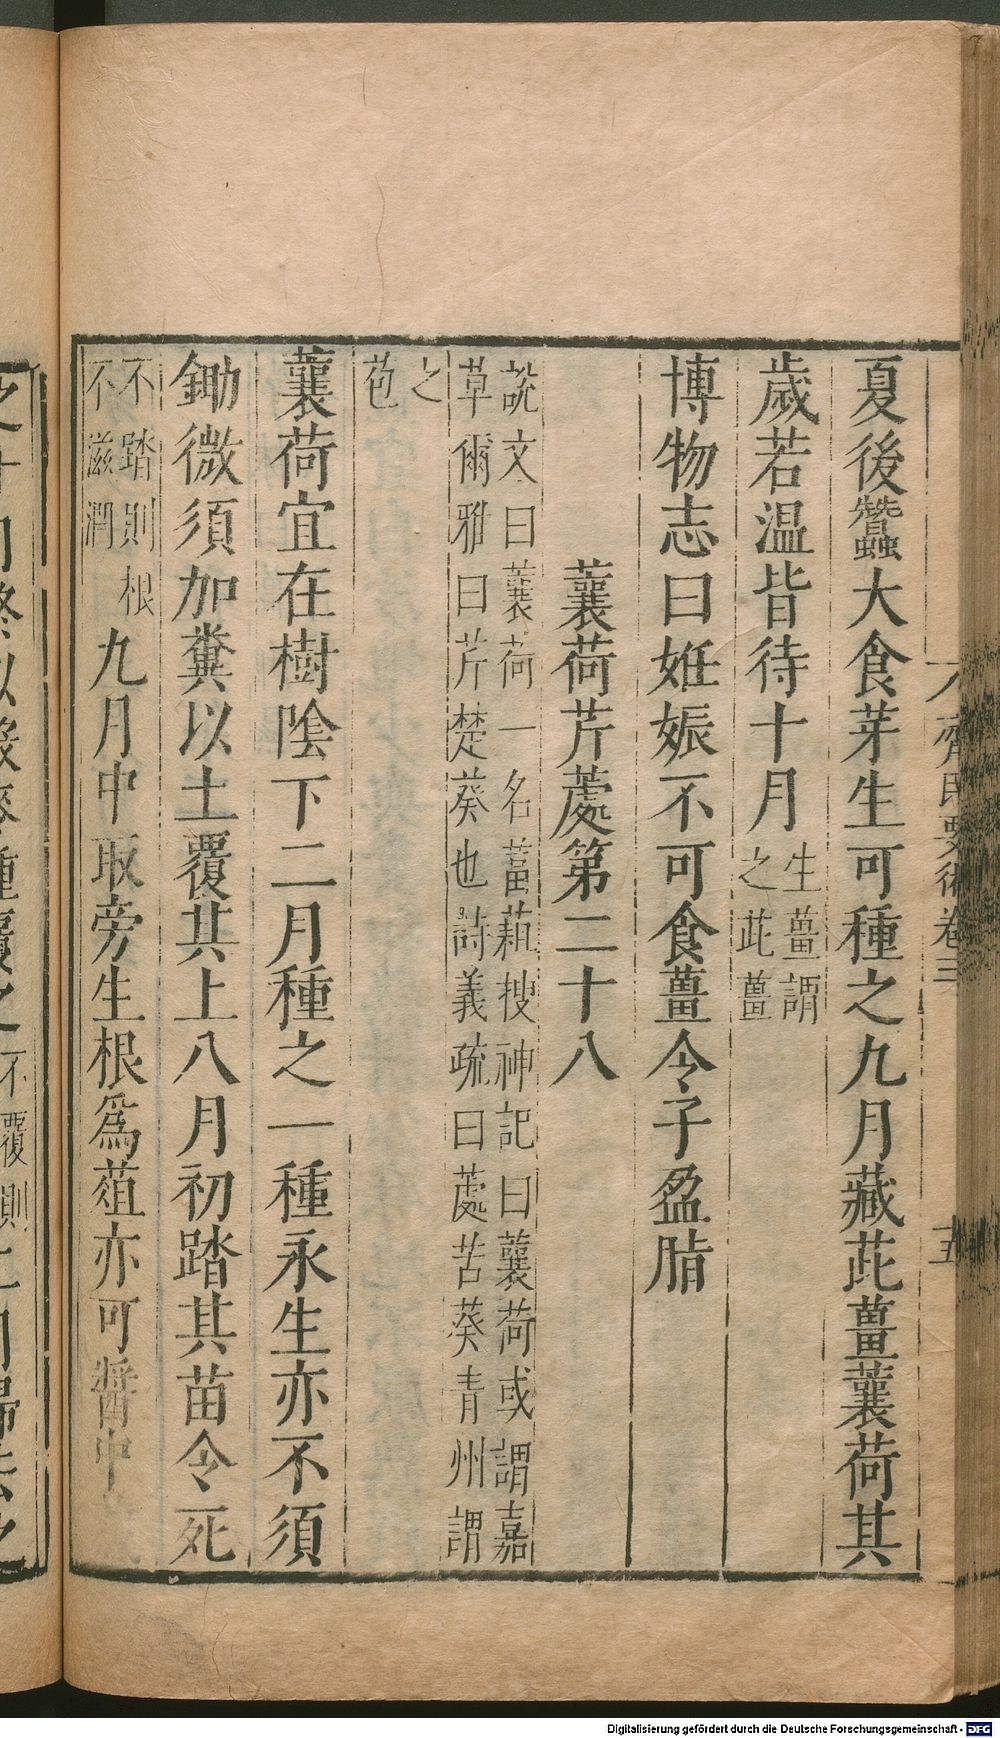 夏後蠶大食芽生可種之九月藏茈薑蘘荷其
歲若温皆待十月生薑謂之茈薑
博物志曰姙娠不可食薑令子盈脂
蘘荷芹䕒第二十八
說文曰蘘荷一名葍蒩搜神記曰蘘荷或謂嘉
草爾雅曰芹楚葵也詩義疏曰䕒苦葵青州謂
之
苞
蘘荷宜在樹陰下二月種之一種永生亦不須
鋤微須加糞以土覆其上八月初踏其苗令死
不踏則根不滋潤九月中取旁生根爲葅亦可醬中
齊民要術卷三
五
不覆則
Digitalisierung gefördert durch die Deutsche Forschungsgemeinschaft - DFG